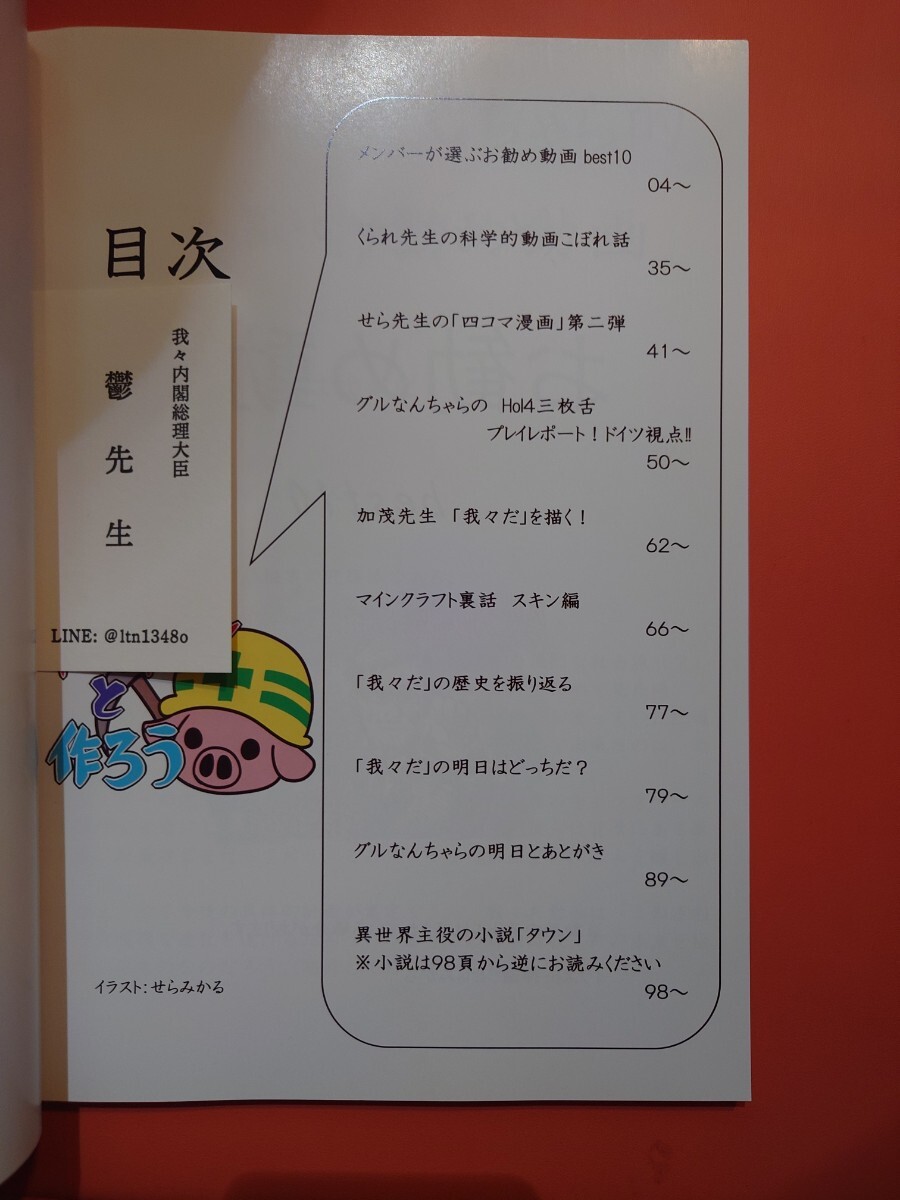 目次
メンバーが選ぶお勧め動画 best10
04～
くられ先生の科学的動画こぼれ話
35～
せら先生の「四コマ漫画」第二弾
41～
グルなんちゃらの HoI4三枚舌
プレイレポート！ドイツ視点!!
50～
加茂先生 「我々だ」を描く！
62～
マインクラフト裏話 スキン編
66～
「我々だ」の歴史を振り返る
77～
「我々だ」の明日はどっちだ？
79～
グルなんちゃらの明日とあとがき
89～
異世界主役の小説「タウン」
※小説は98頁から逆にお読みください
98～
我々内閣総理大臣
鬱先生
LINE: @ltn1348o
と
作ろう
イラスト：せらみかる